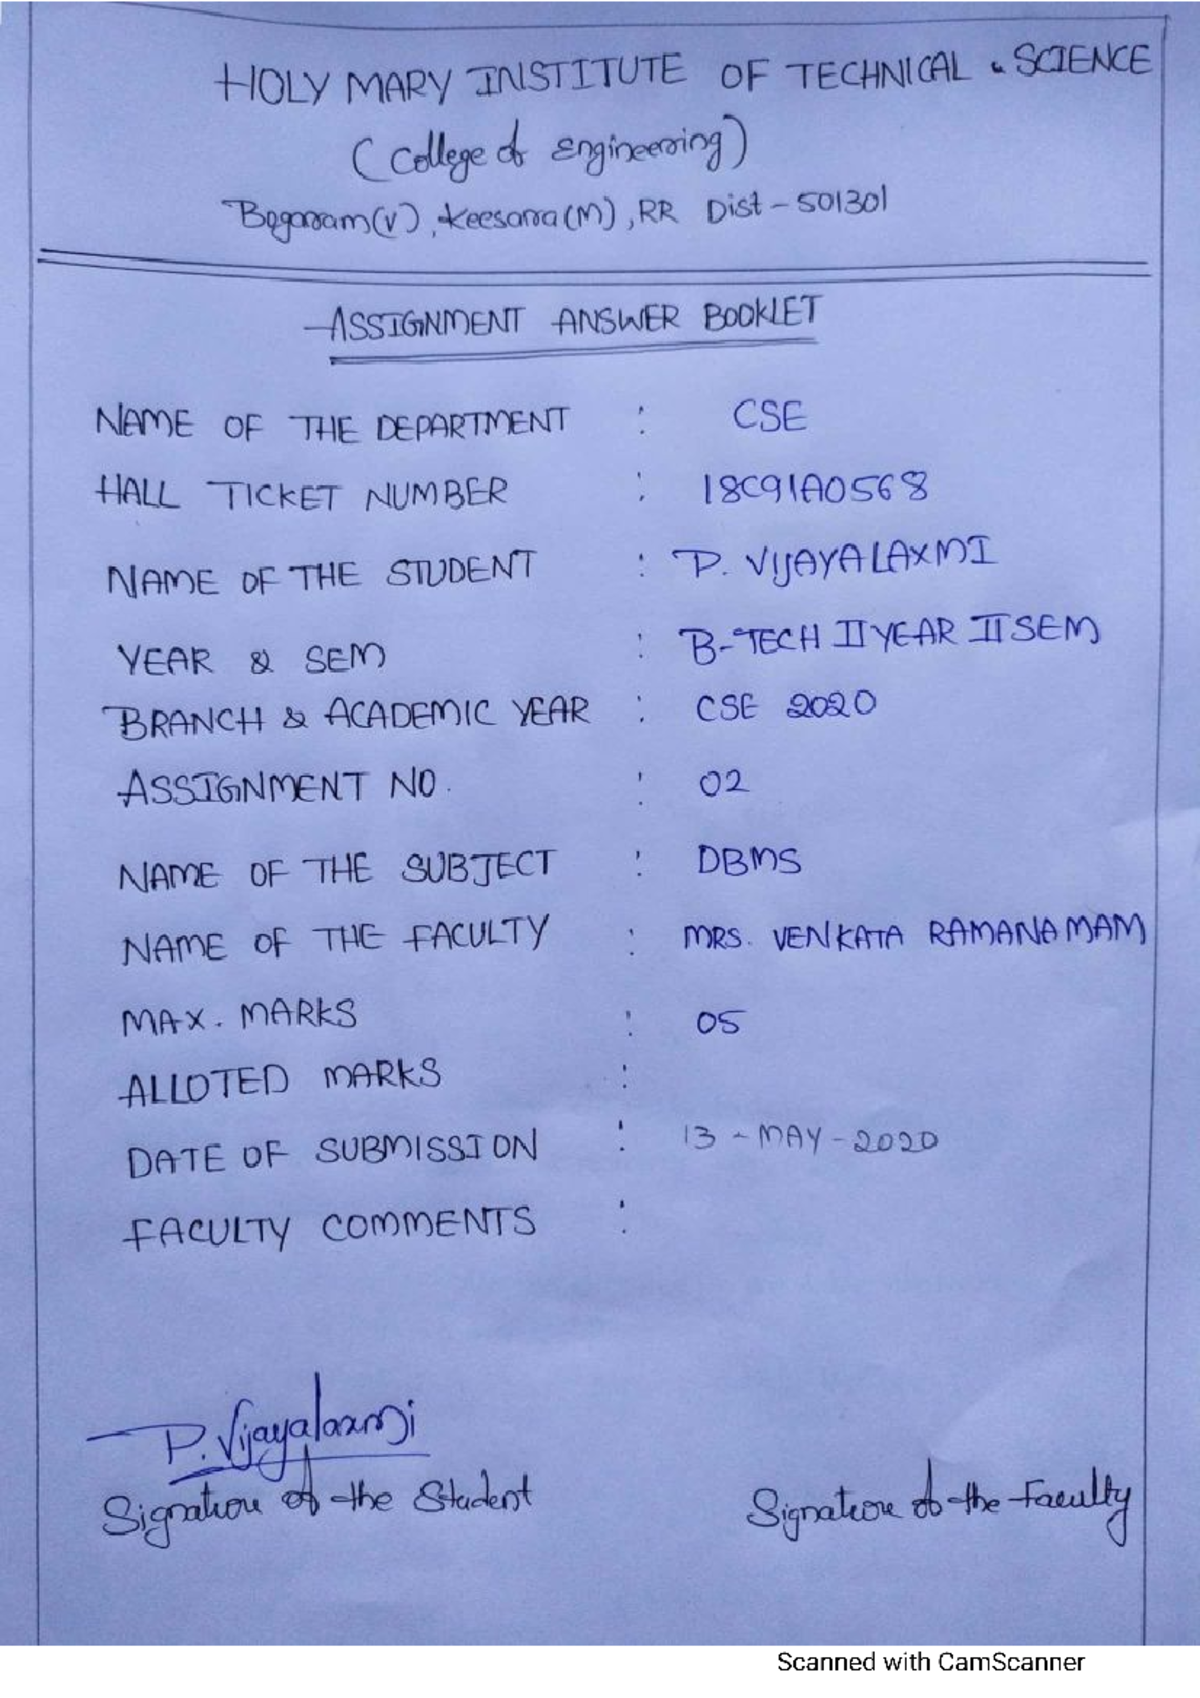 HOLY MARY INSTITUTE OF TECHNICAL & SCIENCE
(College of Engineering)
Bogaram(V), Keesara(M), RR Dist - 501301
ASSIGNMENT ANSWER BOOKLET
NAME OF THE DEPARTMENT : CSE
HALL TICKET NUMBER : 18C91A0568
NAME OF THE STUDENT : P. VIJAYALAXMI
YEAR & SEM : B-TECH II YEAR II SEM
BRANCH & ACADEMIC YEAR : CSE 2020
ASSIGNMENT NO. : 02
NAME OF THE SUBJECT : DBMS
NAME OF THE FACULTY : MRS. VENKATA RAMANA MAM
MAX. MARKS : 05
ALLOTED MARKS :
DATE OF SUBMISSION : 13 - MAY - 2020
FACULTY COMMENTS :
P. Vijayalaxmi
Signature of the Student Signature of the Faculty
Scanned with CamScanner